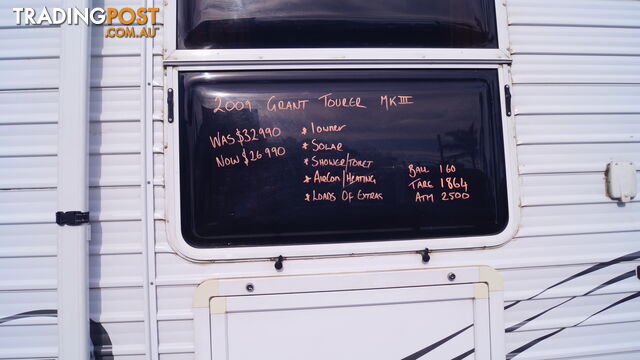 TRADINGPOST
.COM.AU
2009 GRANT TOURER MK III
WAS $32990
NOW $26990
* 1 OWNER
* SOLAR
* SHOWER/TOILET
* AIRCON/HEATING
* LOADS OF EXTRAS
BALL 160
TARE 1864
ATM 2500